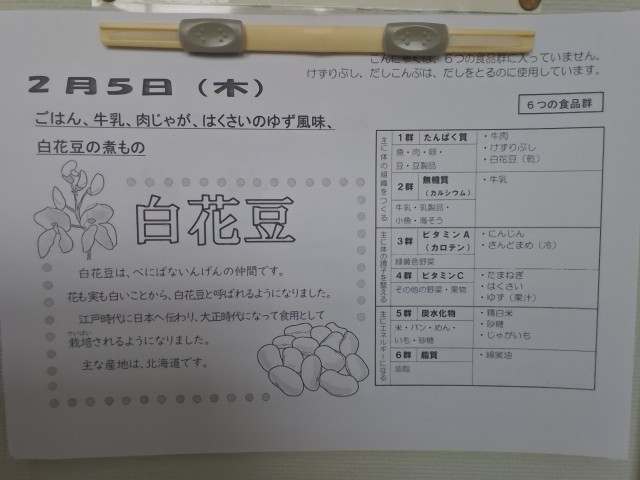 こんにゃくは、6つの食品群に入っていません。
けずりぶし、だしこんぶは、だしをとるのに使用しています。
2月5日（木）
6つの食品群
ごはん、牛乳、肉じゃが、はくさいのゆず風味、
白花豆の煮もの
白花豆
白花豆は、べにばないんげんの仲間です。
花も実も白いことから、白花豆と呼ばれるようになりました。
江戸時代に日本へ伝わり、大正時代になって食用として
さいばい
栽培されるようになりました。
主な産地は、北海道です。
主に体の組織をつくる
1群 たんぱく質
魚・肉・卵・
豆・豆製品
・牛肉
・けずりぶし
・白花豆（乾）
2群 無機質
（カルシウム）
牛乳・乳製品・
小魚・海そう
・牛乳
主に体の調子を整える
3群 ビタミンA
（カロテン）
緑黄色野菜
・にんじん
・さんどまめ（冷）
4群 ビタミンC
その他の野菜・果物
・たまねぎ
・はくさい
・ゆず（果汁）
主にエネルギーになる
5群 炭水化物
米・パン・めん・
いも・砂糖
・精白米
・砂糖
・じゃがいも
6群 脂質
油脂
・綿実油